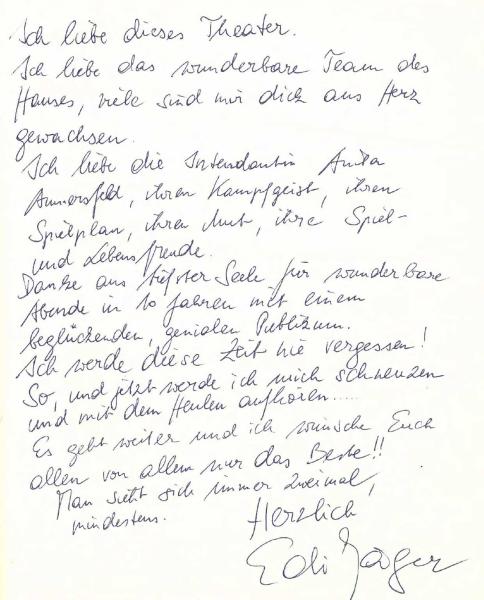 Ich liebe dieses Theater.
Ich liebe das wunderbare Team des
Hauses, viele sind mir dick ans Herz
gewachsen.
Ich liebe die Intendantin Anita
Ammersfeld, ihren Kampfgeist, ihren
Spielplan, ihren Mut, ihre Spiel-
und Lebensfreude.
Danke aus tiefster Seele für wunderbare
Abende in 10 Jahren mit einem
beglückenden, genialen Publikum.
Ich werde diese Zeit nie vergessen!
So, und jetzt werde ich mich schneuzen
und mit dem Heulen aufhören.....
Es geht weiter und ich wünsche Euch
allen von allem nur das Beste!!
Man sieht sich immer zweimal,
mindestens.
Herzlich
Edi Jäger